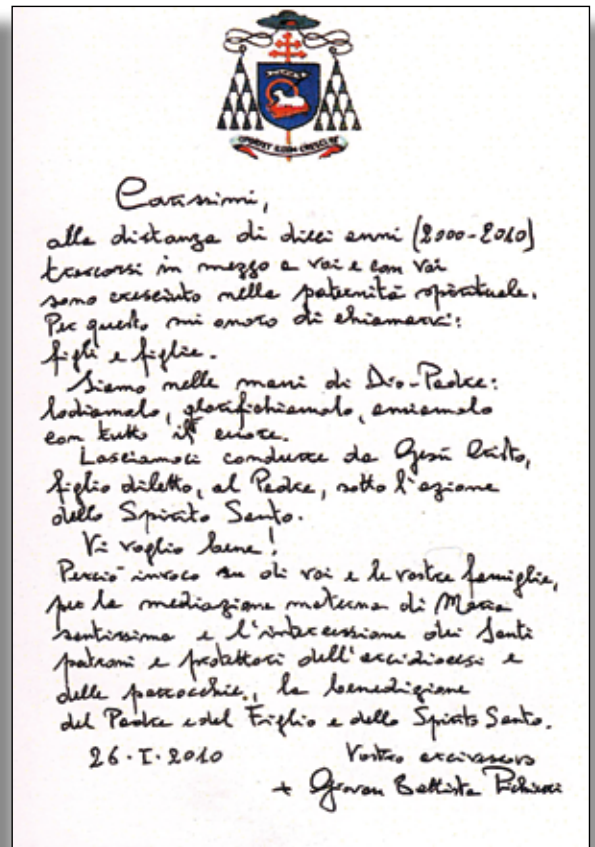 OPORTET ILLUM CRESCERE
Carissimi,
alla distanza di dieci anni (2000-2010)
trascorsi in mezzo a voi e con voi
sono cresciuto nella paternità spirituale.
Per questo mi onoro di chiamarvi:
figli e figlie.
Siamo nelle mani di Dio-Padre:
lodiamolo, glorifichiamolo, amiamolo
con tutto il cuore.
Lasciamoci condurre da Gesù Cristo,
figlio diletto, al Padre, sotto l'azione
dello Spirito Santo.
Vi voglio bene!
Perciò invoco su di voi e le vostre famiglie,
per la mediazione materna di Maria
santissima e l'intercessione dei Santi
patroni e protettori dell'arcidiocesi e
delle parrocchie, la benedizione
del Padre e del Figlio e dello Spirito Santo.
26·I·2010 Vostro arcivescovo
+ Giovan Battista Pichierri